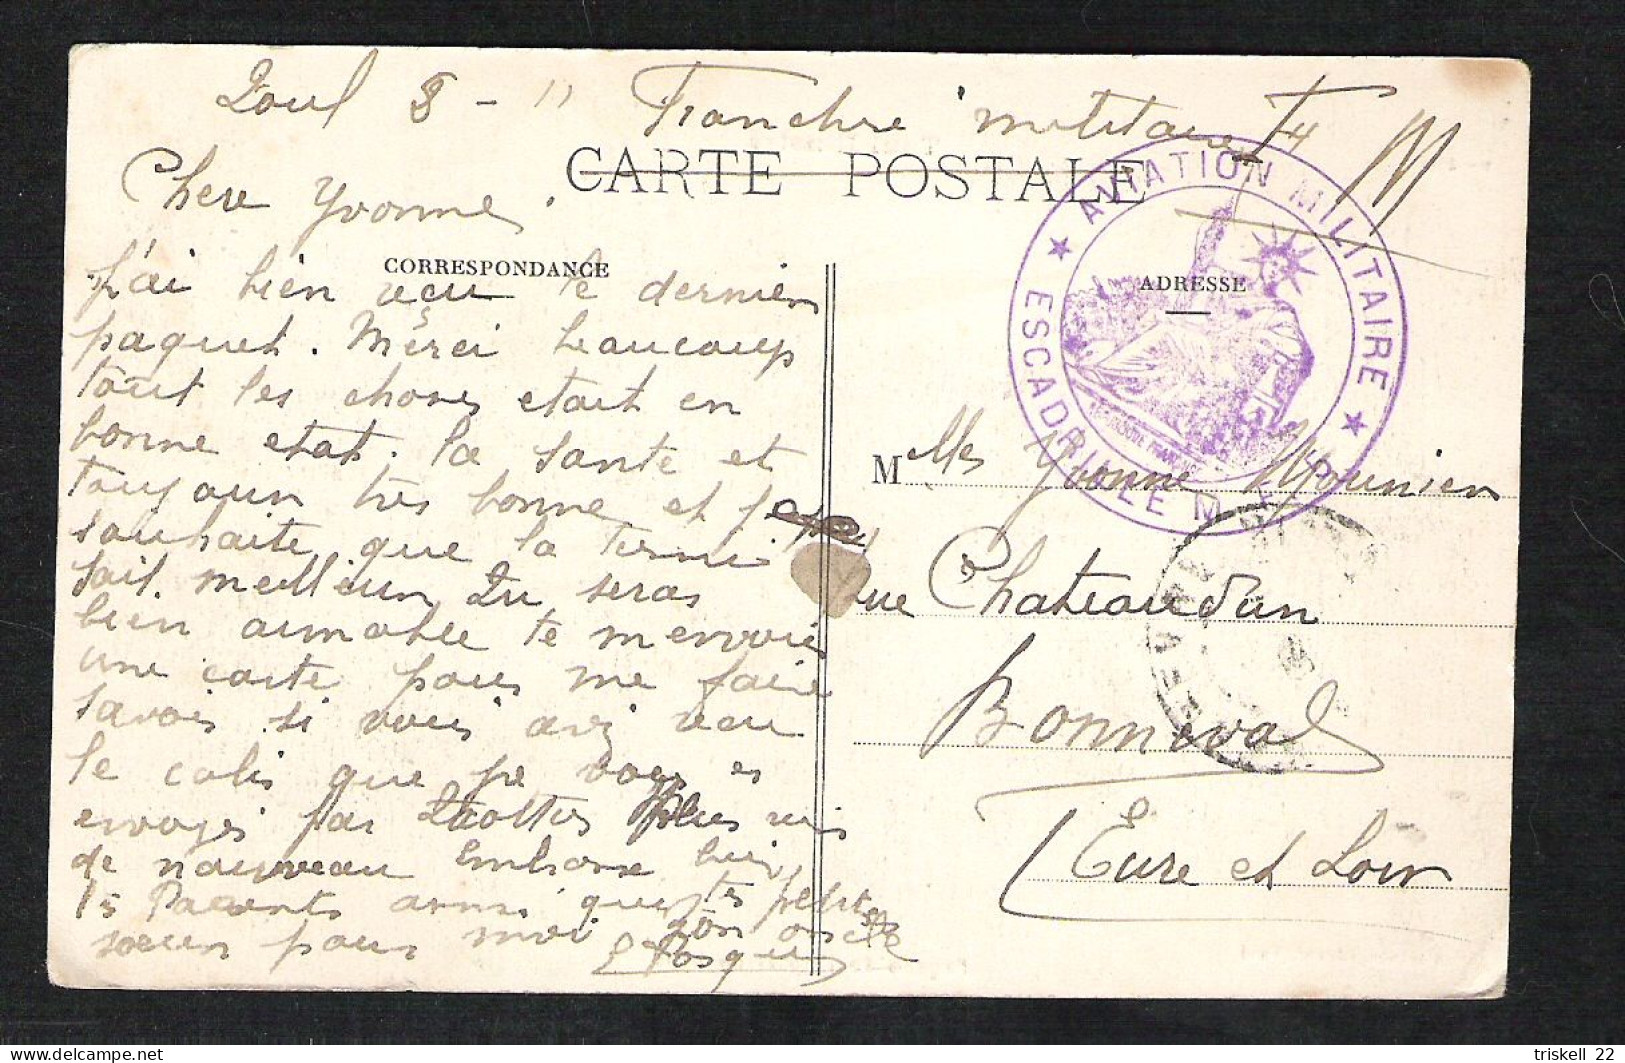 Toul 8 - 11 Franchise militaire
CARTE POSTALE
Chere Yvonne.
CORRESPONDANCE
ADRESSE
AVIATION MILITAIRE
ESCADRILLE M. F.
j'ai bien reçu le dernier
paquet. Merci beaucoup
tout les choses etait en
bonne etat. la sante et
toujour très bonne et je
souhaite que la tienne
soit meilleur Tu seras
bien aimable te m envoié
une carte pour me faire
savoir si vous avez reçu
le colis que je vous es
envoyé par
de nouveau Embrasse bien
ts Parents ainsi que ts petites
soeur pour moi ton oncle
M elles Yvonne Mounier
rue Chateaudun
Bonneval
Eure et Loir
triskell_22